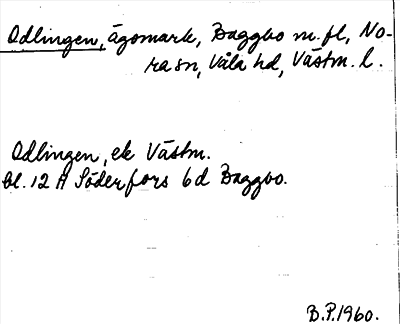 Odlingen, ägomark, Baggbo m.fl, No-
ra sn, Våla hd, Västm. l.
Odlingen, ek Västm.
bl. 12 A Söderfors 6d Baggbo.
B.P.1960.